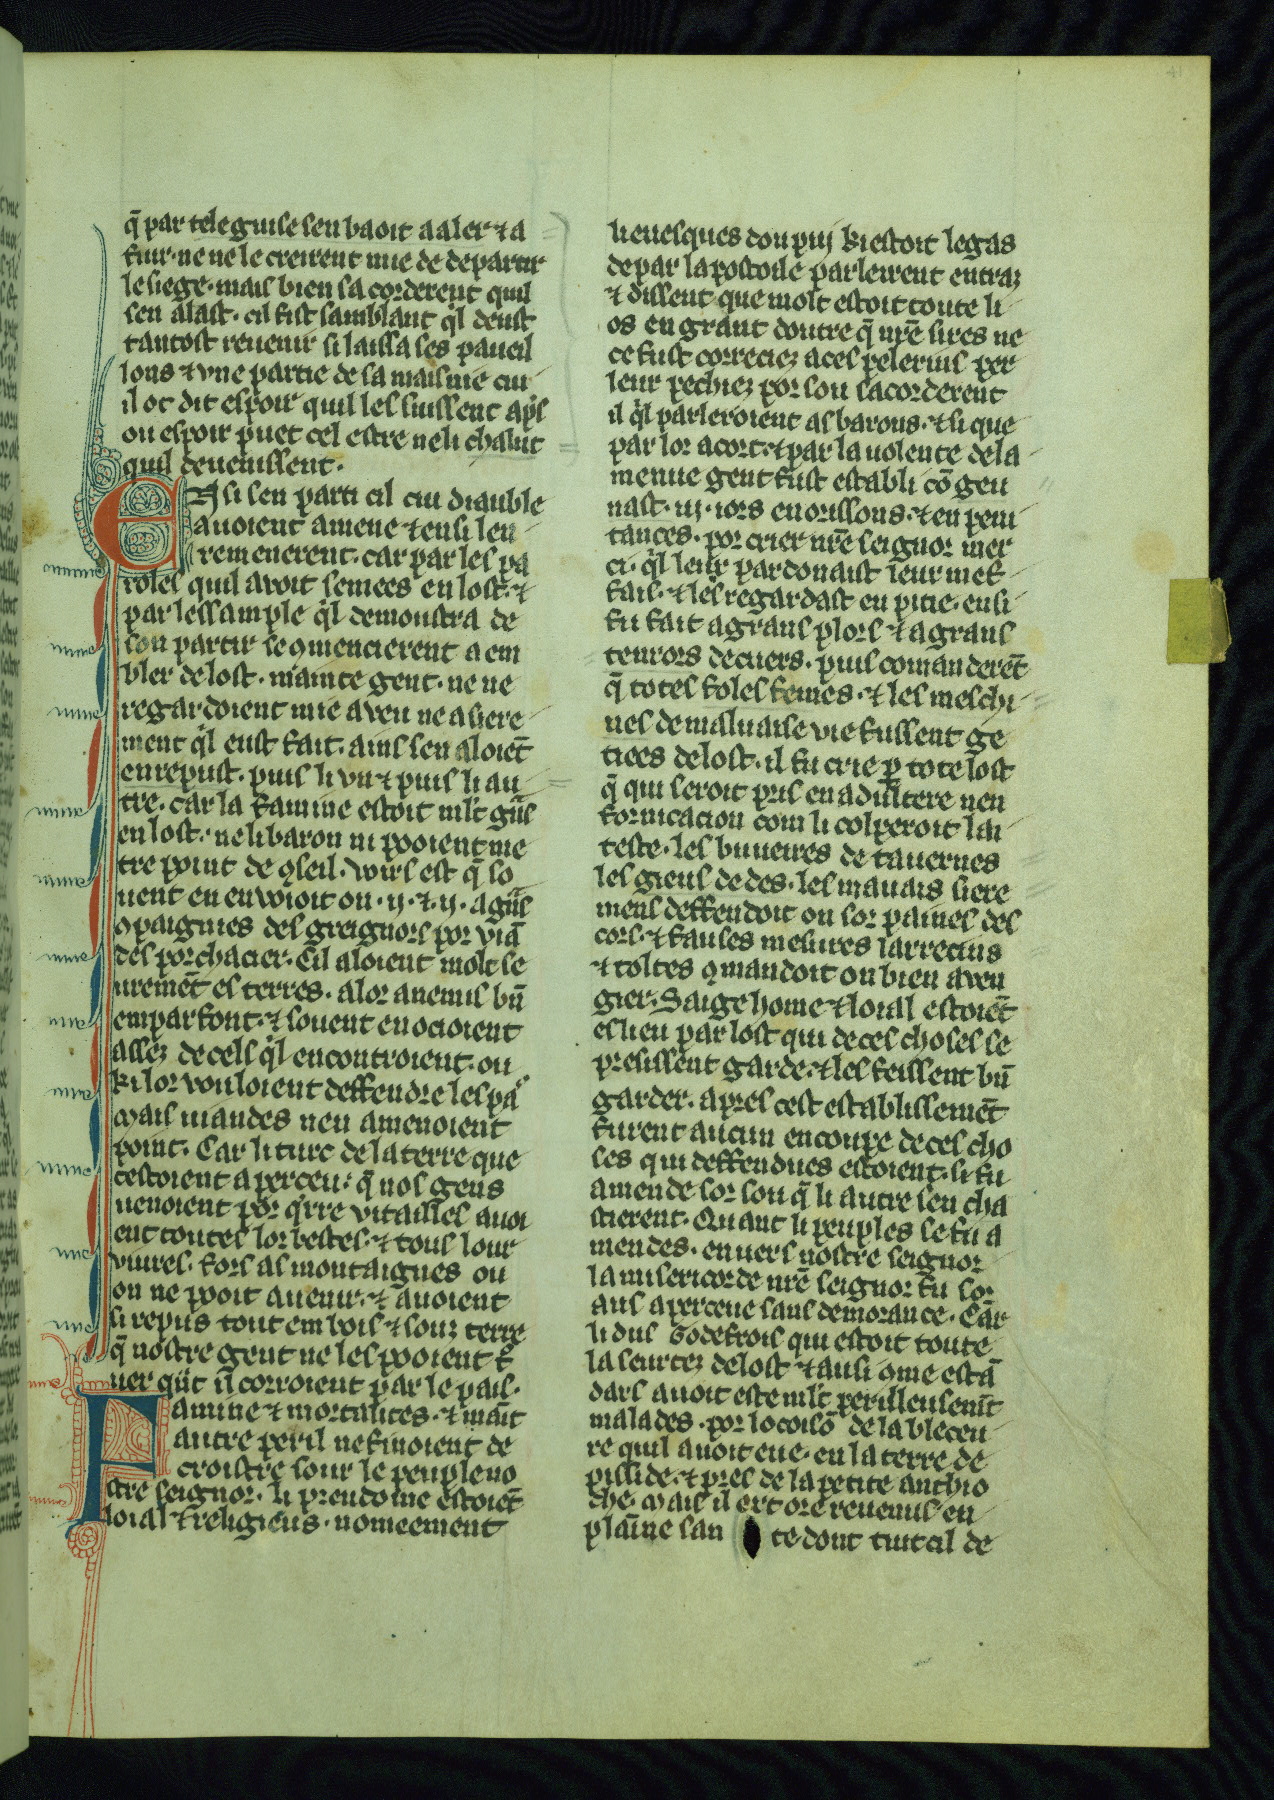 q̄ par tele guise sen baoit a aler ⁊ a
fuir. ne ne le creirent mie de departir
le siege. mais bien sacorderent quil
sen alast. cil fist samblant ql deust
tantost reuenir si laissa ses paueil
lons ⁊ vne partie de sa maisnie cui
il ot dit espoir quil les siuissent apͥs
ou espoir puet cel estre ne li chalut
quil deuenissent.
Ensi sen parti cil cui diauble
auoient amene ⁊ ensi len
remenerent. car par les pa
roles quil auoit semees en lost. ⁊
par lessample ql demonstra de
son partir se ꝯmencierent a em
bler de lost. mainte gent. ne ne
regardoient mie a veu ne a siere
ment ql eust fait. ains sen aloiēt
en repust. puis li vn ⁊ puis li au
tre. car la famine estoit mlt gn̄s
en lost. ne li baron ni pooient me
tre point de ꝯseil. voirs est q̄ so
uent en enuoioit on .ij. ⁊ .ij. a gn̄s
ꝯpaignies des greignors por viā
des porchacier. Cil aloient molt se
uremēt es terres. a lor anemis bn̄
emparfont. ⁊ souent en ocioient
assez de cels ql encontroient. ou
ki lor vouloient deffendre les pas
Mais uiandes nen amenoient
point. Car li turc de la terre que
cestoient aperceu. q̄ nos gens
uenoient por qͥrre vitailles auoi
ent toutes lor bestes. ⁊ tous lour
viures. fors as montaignes ou
on ne pooit auenir. ⁊ auoient
si repus tout em bois ⁊ souz terre
q̄ nostre gent ne les pooient t̄
uer qn̄t il corroient par le pais.
Famine ⁊ mortalites. ⁊ māit
autre peril ne finoient de
croistre sour le peuple no
stre seignor. li preudome estoiēt
loial ⁊ religieus. nomeement
li euesques dou pui ki estoit legas
de par lapostoile parleirent entraz
⁊ dissent que molt estoit toute li
os en grant doutre q̄ nr̄e sires ne
ce fust correciez a ces pelerins per
leur pechiez por sou sacorderent
il ql parleroient as barons. ⁊ si que
par lor acort. ⁊ par la uolente de la
menue gent fust establi cō geu
nast .iij. iors en orissons. ⁊ en peni
tances. por crier nr̄e seignor mer
ci. ql leur pardonaist leur mef
fais. ⁊ les regardast en pitie. ensi
fu fait a grans plors ⁊ a grans
tenrors de cuers. puis comanderēt
q̄ totes foles femes. ⁊ les meschi
nes de maluaise vie fussent ge
tiees de lost. il fu crie ꝑ tote lost
q̄ qui seroit pris en adultere nen
fornication com li colperoit lai
teste. les buueires de tauernes
les gieus de des. les mauais siere
mens deffendoit on sor paines des
cors. ⁊ fauses mesures larrecins
⁊ toltes ꝯmandoit on bien a ven
gier. Saige home ⁊ loial estoiēt
eslieu par lost qui de ces choses se
presissent garde. ⁊ les feissent bn̄
garder. apres cest establissemēt
furent aucun encoupe de ces cho
ses qui deffendues estoient. si fu
amende sor sou q̄ li autre sen cha
stierent. Quant li peuples se fu a
mendes. enuers nostre seignor
la misericorde nr̄e seignor fu sor
aus aperceue sans demorance. Car
li dus Godefrois qui estoit toute
la seurtez de lost ⁊ ausi ꝯme estā
dars auoit este mlt perilleusemt̄
malades. por locoisō de la bleceu
re quil auoit eue. en la terre de
pissi de. ⁊ pres de la petite anthio
che. Mais il ert ore reuenus en
plaine san te dont tuit cil de